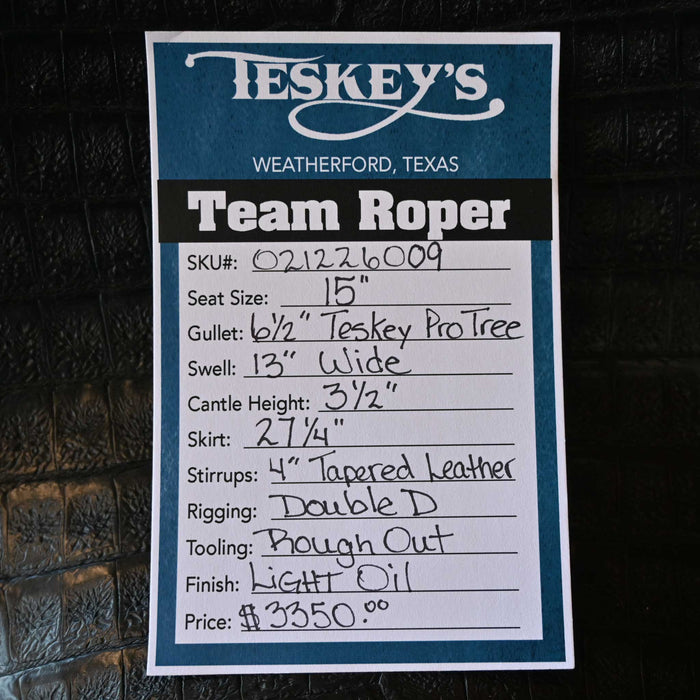 TESKEY'S
WEATHERFORD, TEXAS
Team Roper
SKU#: 021226009
Seat Size: 15"
Gullet: 6½" Teskey Pro Tree
Swell: 13" Wide
Cantle Height: 3½"
Skirt: 27¼"
Stirrups: 4" Tapered Leather
Rigging: Double D
Tooling: Rough Out
Finish: LIGHT Oil
Price: $3350.00